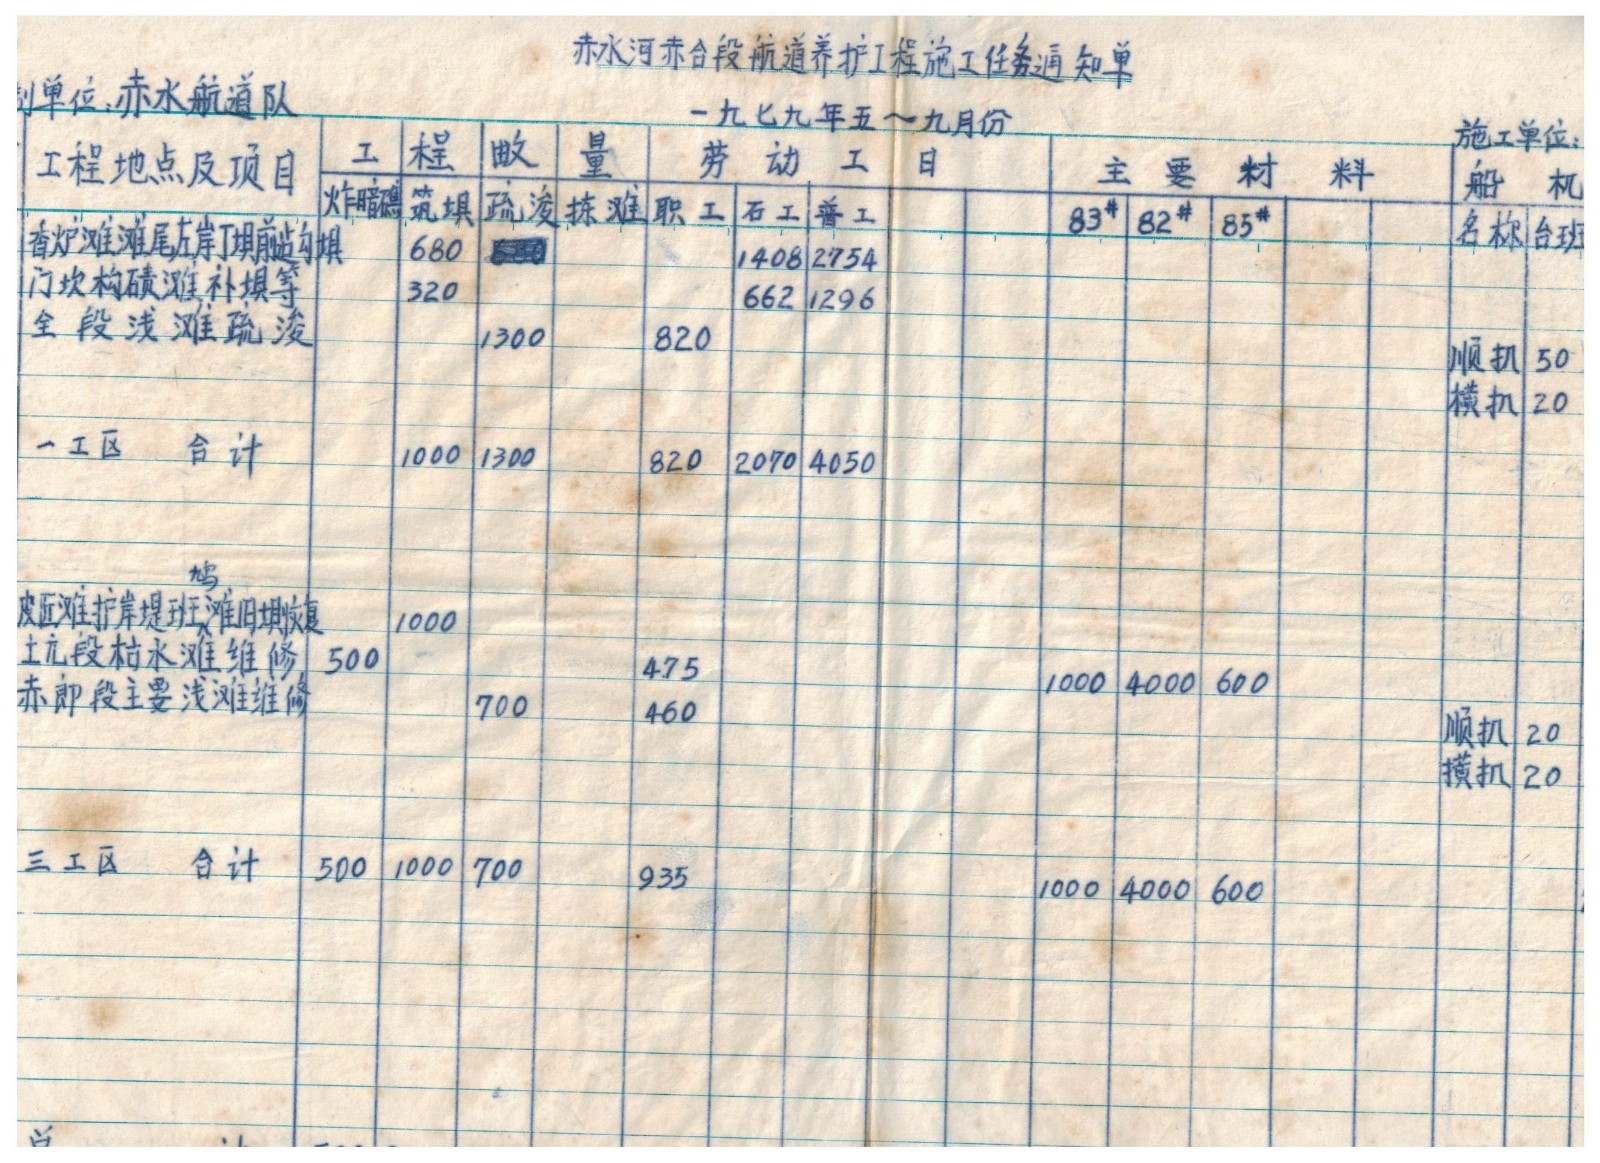 赤水河赤合段航道养护工程施工任务通知单
制单位:赤水航道队
一九七九年五~九月份
施工单位:
工程地点及项目 工程数量 劳动工目 主要材料 船机
炸暗礁 筑埧 疏浚 拣滩 职工 石工 普工 83# 82# 85# 名称 台班
香炉滩滩尾左岸丁埧前 勾埧 680 1408 2754
门坎构碛滩补埧等 320 662 1296
全段浅滩疏浚 1300 820
顺扒 50
横扒 20
一工区 合计 1000 1300 820 2070 4050
鸠
皮匠滩护岸堤班滩旧埧恢复 1000
土亢段枯水滩维修 500 475 1000 4000 600
赤郎段主要浅滩维修 700 460
顺扒 20
横扒 20
三工区 合计 500 1000 700 935 1000 4000 600